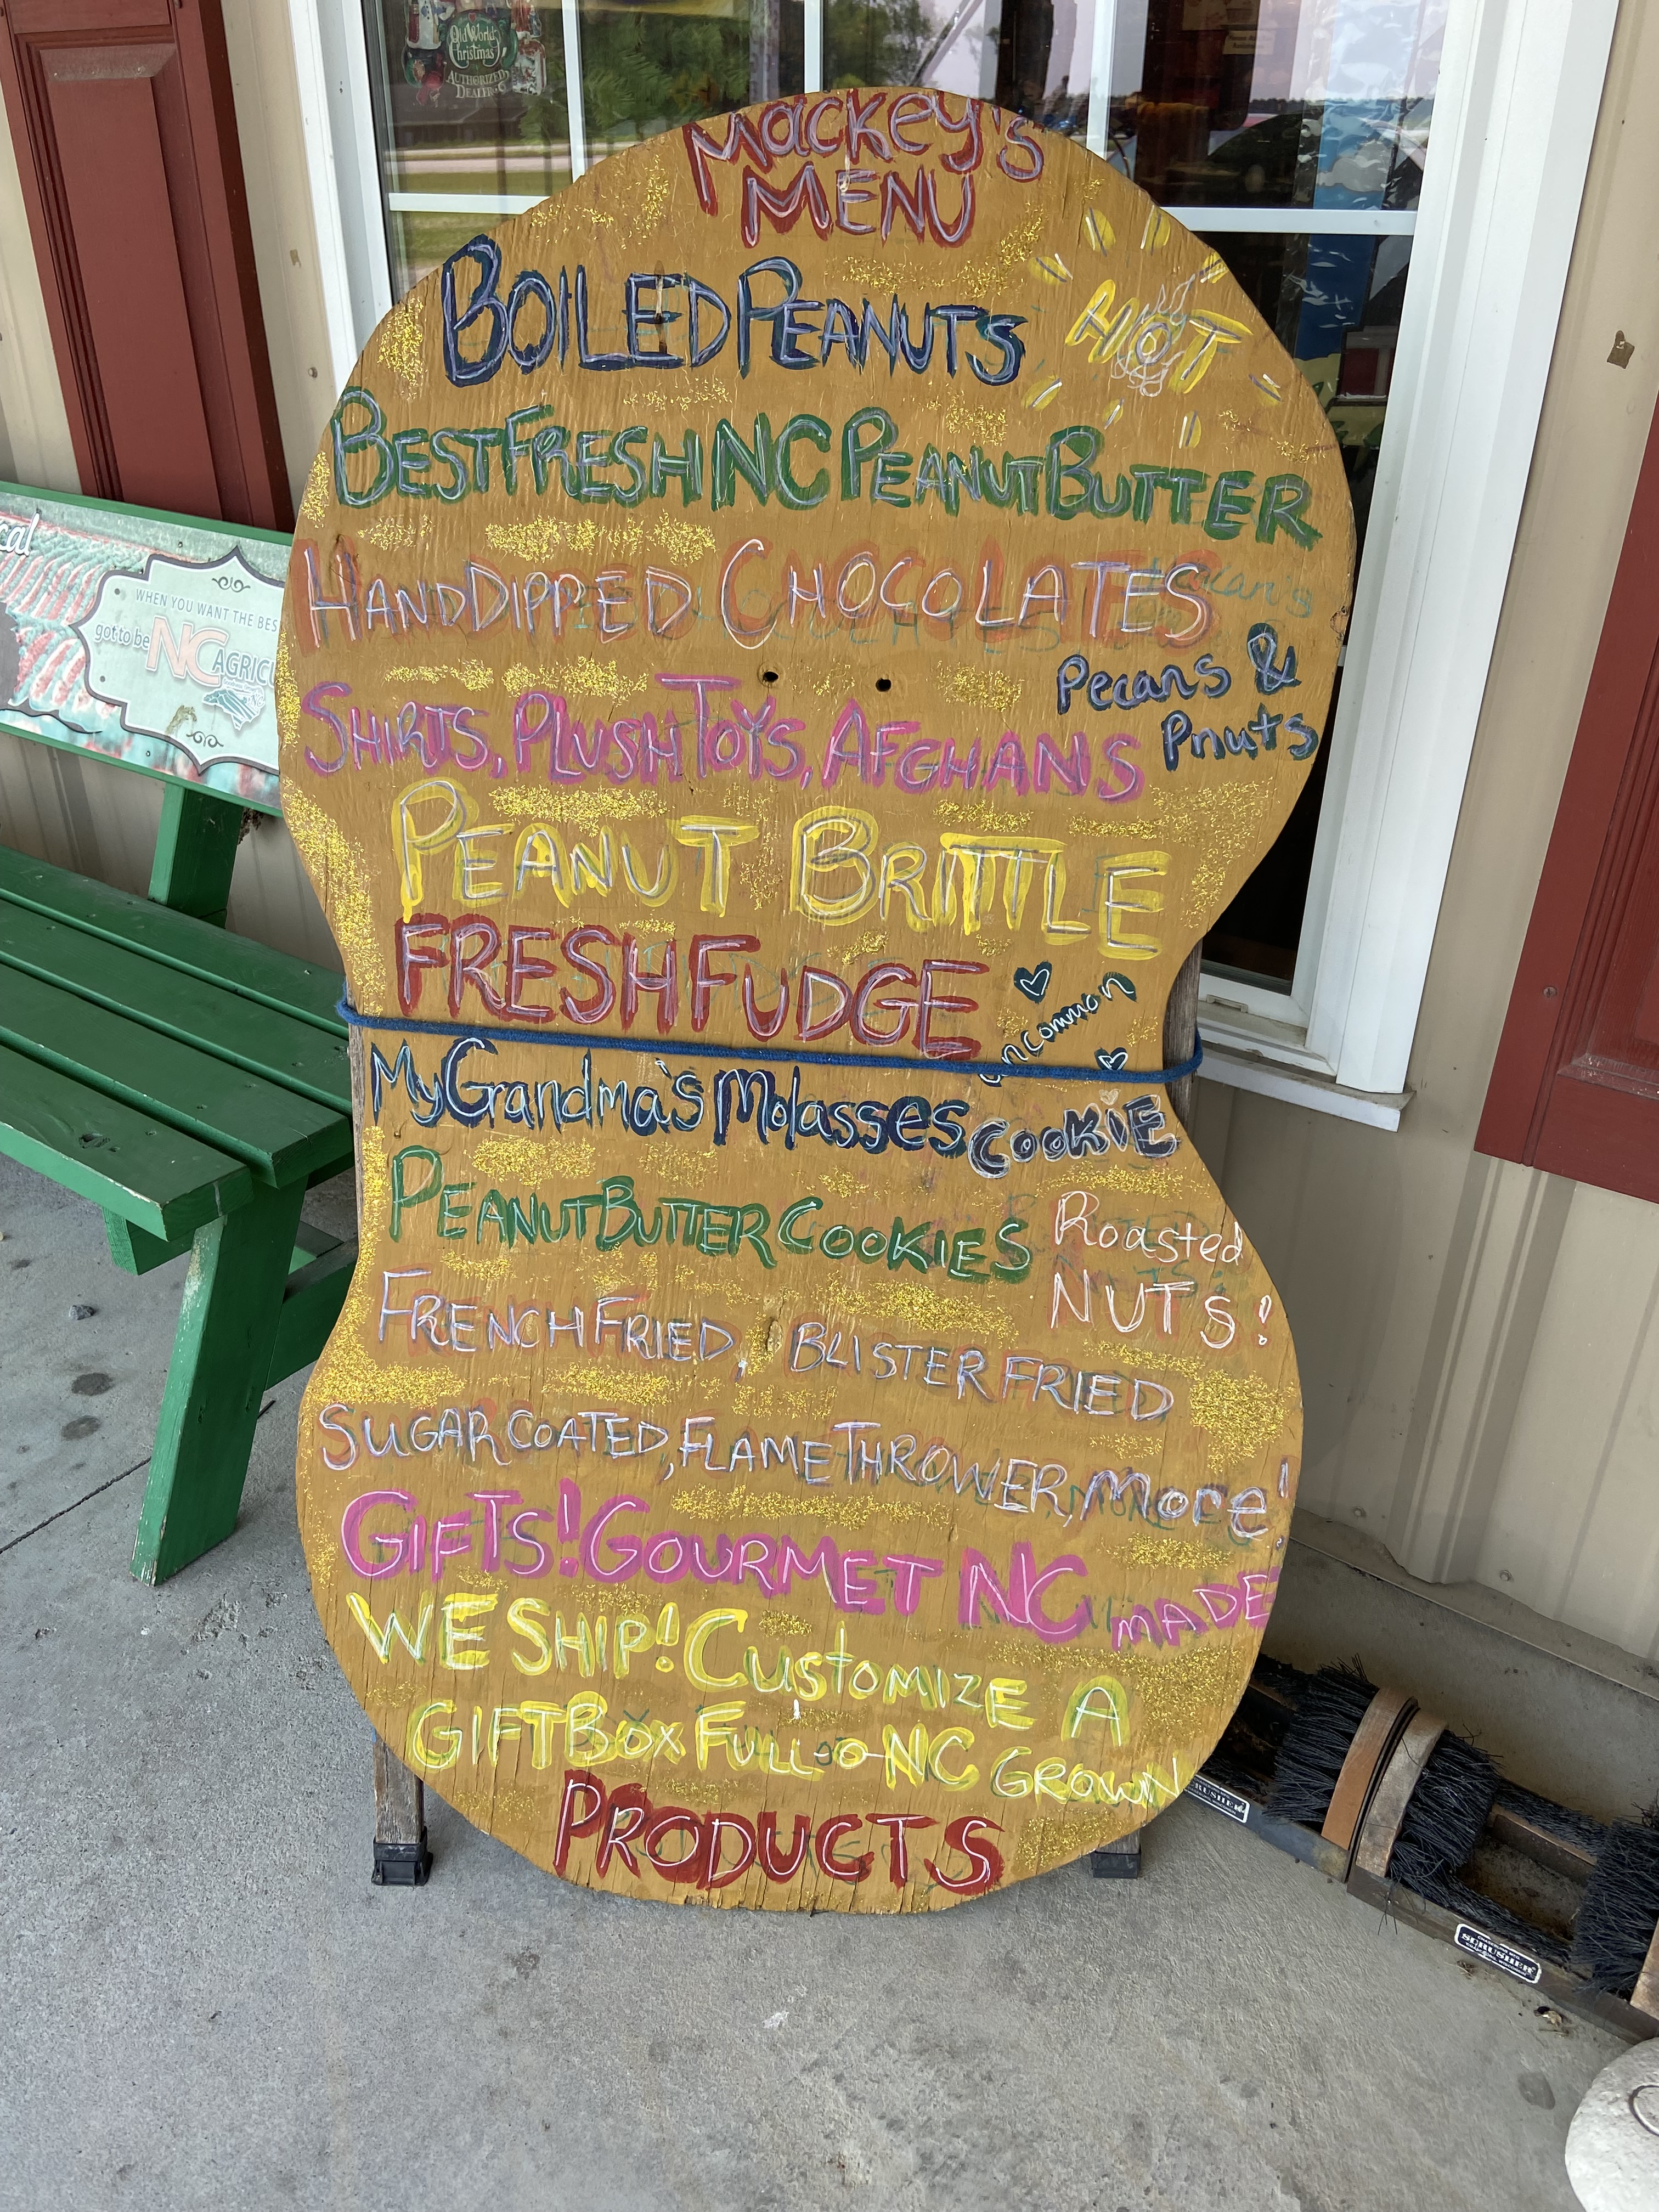 Old World
Christmas
AUTHORIZED
DEALER
Mackey's
MENU
BOILED PEANUTS
HOT
BEST FRESH NC PEANUT BUTTER
HAND DIPPED CHOCOLATES
Pecans &
Pnuts
SHIRTS, PLUSH TOYS, AFGHANS
PEANUT BRITTLE
FRESH FUDGE
uncommon
My Grandma's Molasses COOKIE
PEANUT BUTTER COOKIES
Roasted
NUTS!
FRENCH FRIED, BLISTER FRIED
SUGAR COATED, FLAME THROWER, More!
GIFTS! GOURMET NC MADE
WE SHIP! Customize A
GIFT Box FULL-O-NC GROWN
PRODUCTS
cal
WHEN YOU WANT THE BES
got to be NC AGRICU
SCRUSHER